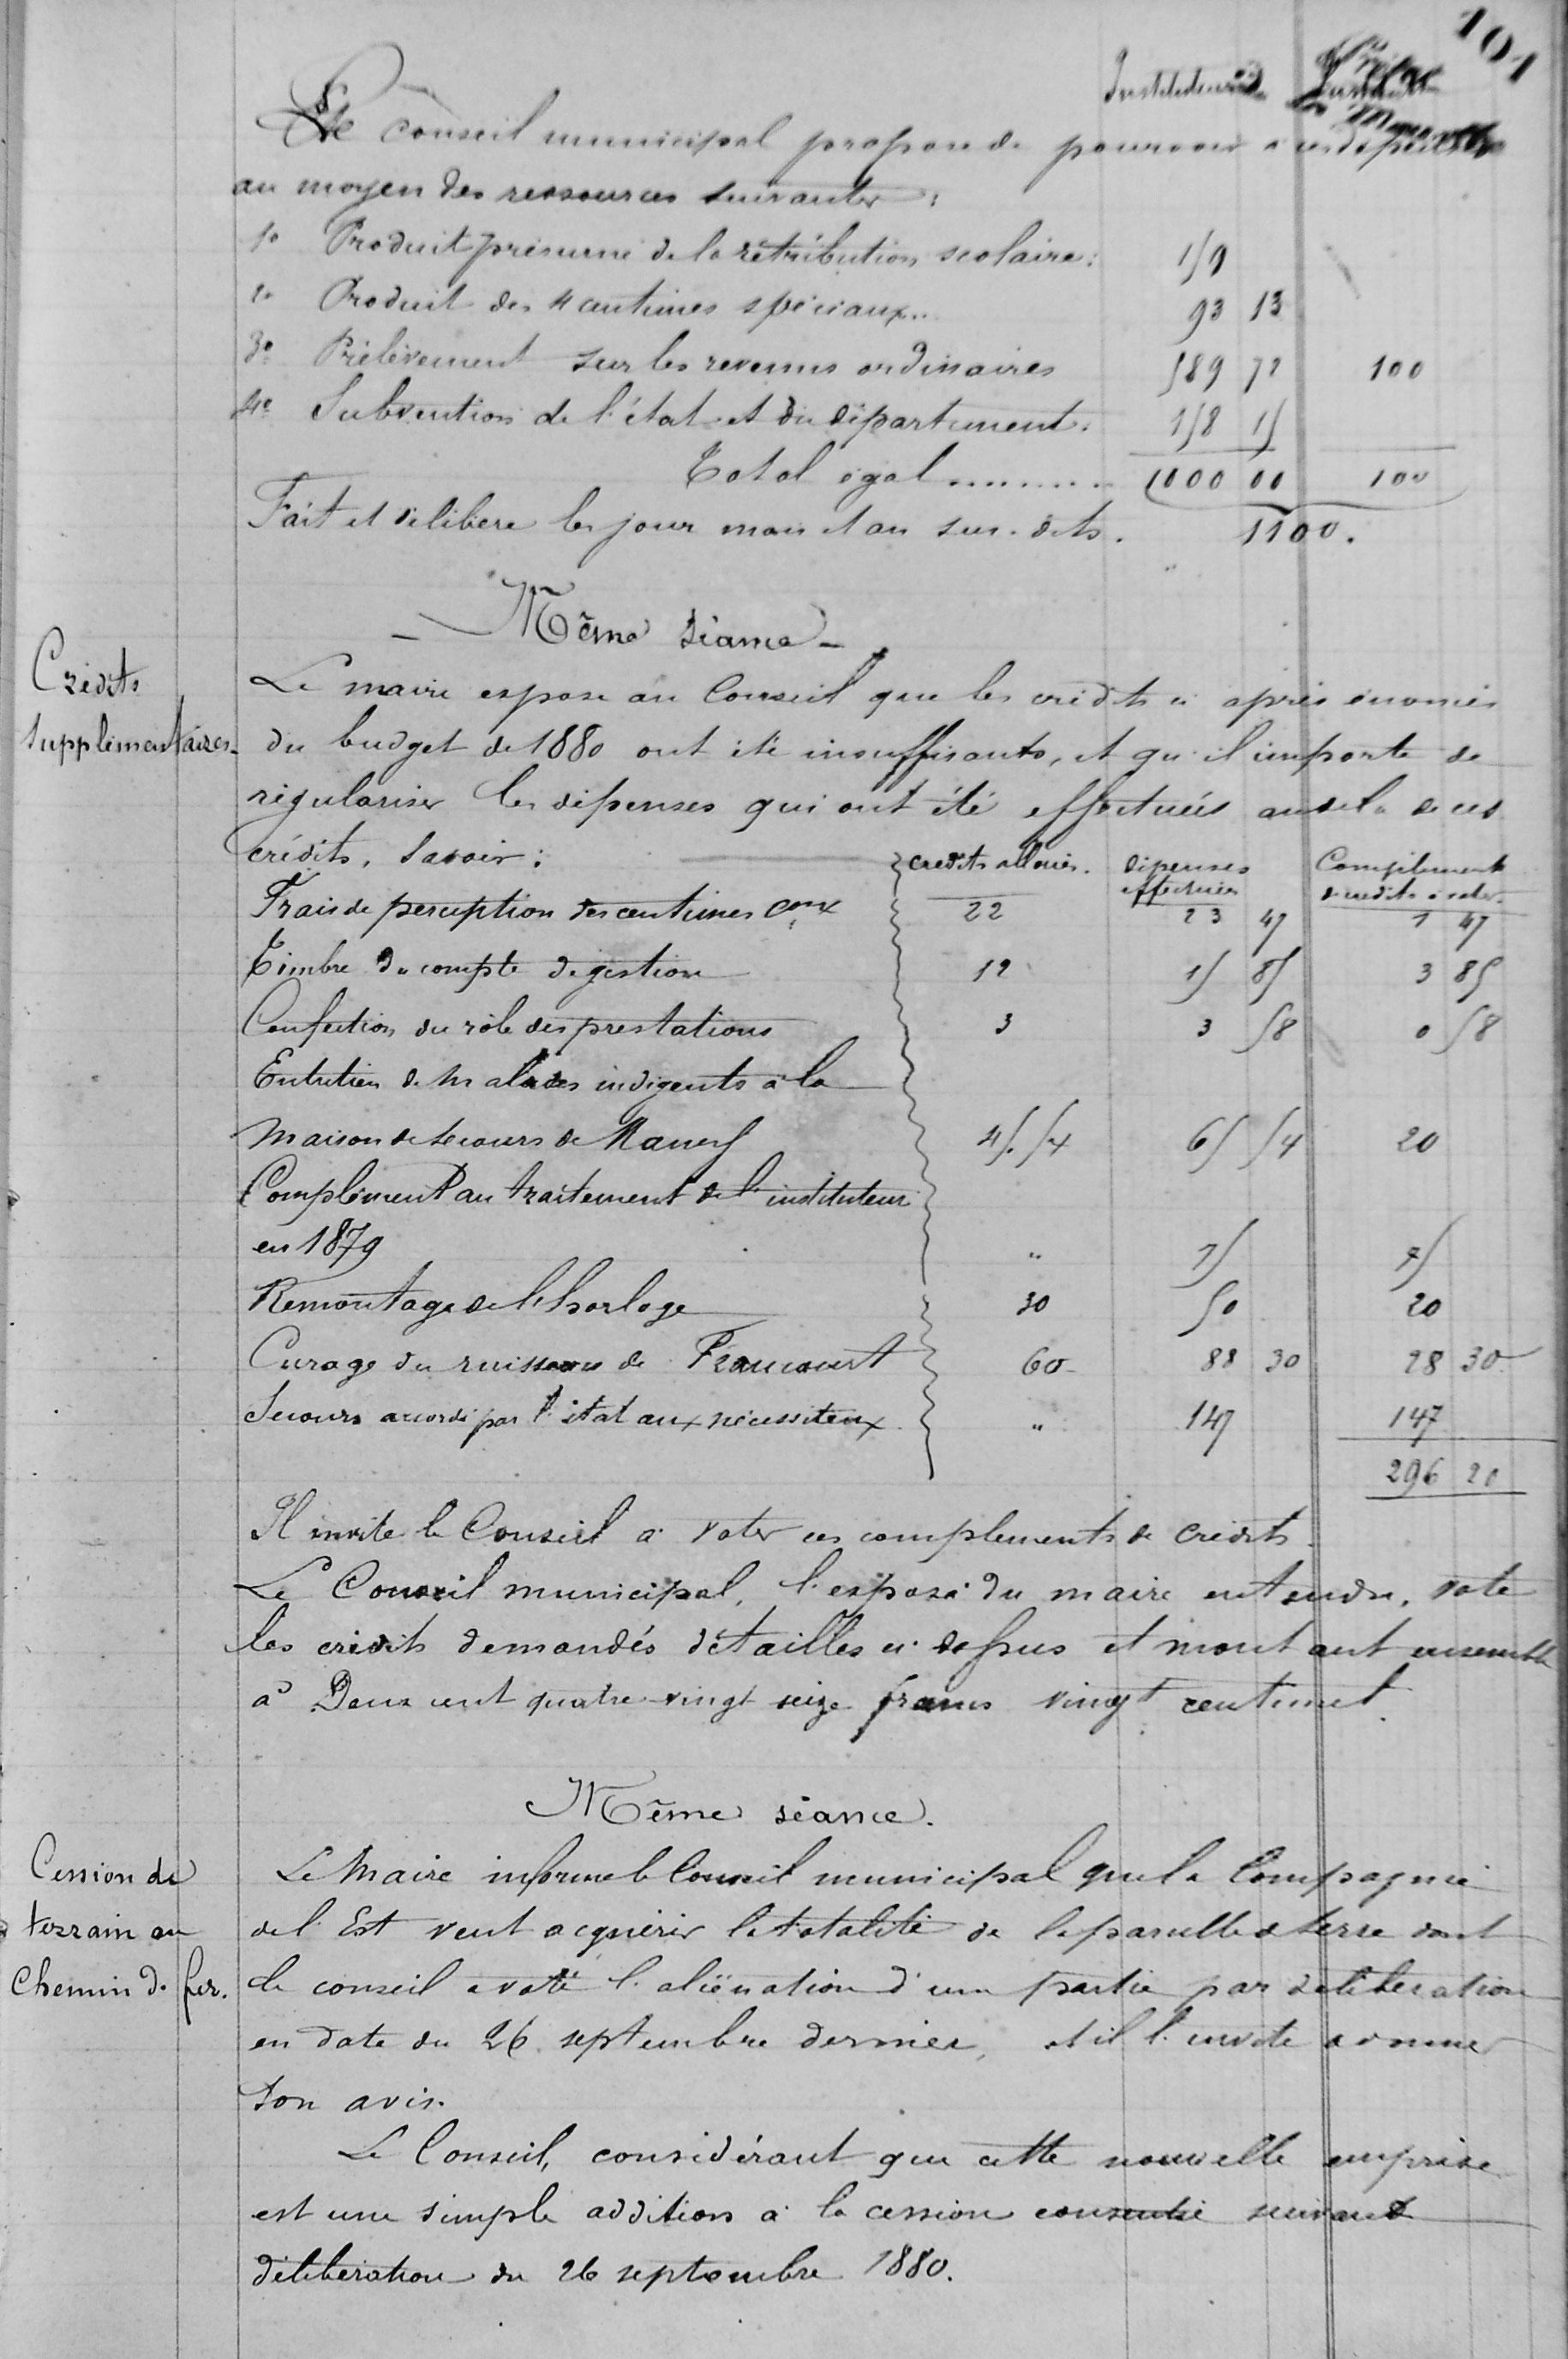 101
Instituteur
Le Conseil municipal propose de pourvoir à ces dépenses
au moyen des ressources suivantes :
1° Produit présumé de la rétribution scolaire : 159
2° Produit des 4 centimes spéciaux.. 93 13
3° Prélèvement sur les revenus ordinaires 589 72 100
4° Subvention de l'état et du département. 158 15
Total égal ........ 1000 00 100
Fait et délibéré les jour mois et an sus-dits. 1100.
- Même séance -
Crédits
supplémentaires.
Le maire expose au Conseil que les crédits ci après énoncés
du budget de 1880 ont été insuffisants, et qu'il importe de
régulariser les dépenses qui ont été effectuées au delà de ces
crédits, Savoir : crédits alloués. dépenses effectuées Complément de crédits à voter.
Frais de perception des centimes Coux 22 23 47 1 47
Timbre du compte de gestion 12 15 85 3 85
Confection du rôle des prestations 3 3 58 0 58
Entretien de Malades indigents à la
Maison de Secours de 45.54 65 54 20
Complément au traitement de l'instituteur
en 1879 " 75 75
Remontage de l'horloge 30 50 20
Curage du ruisseau de Francourt 60 88 30 28 30
Secours accordé par l'état aux nécessiteux " 147 147
296 20
Il invite le Conseil à voter ces compléments de crédits.
Le Conseil municipal, l'exposé du maire entendu, vote
les crédits demandés détaillés ci-dessus et montant ensemble
à Deux cent quatre-vingt seize francs vingt centimes.
Même séance.
Cession de
terrain au
Chemin de fer.
Le Maire informe le Conseil municipal que la Compagnie
de l'Est veut acquérir la totalité de la parcelle de terre dont
le conseil a voté l'aliénation d'une partie par délibération
en date du 26 septembre dernier, et il l'invite à donner
son avis.
Le Conseil, considérant que cette nouvelle emprise
est une simple addition à la cession consentie suivant
délibération du 26 septembre 1880.